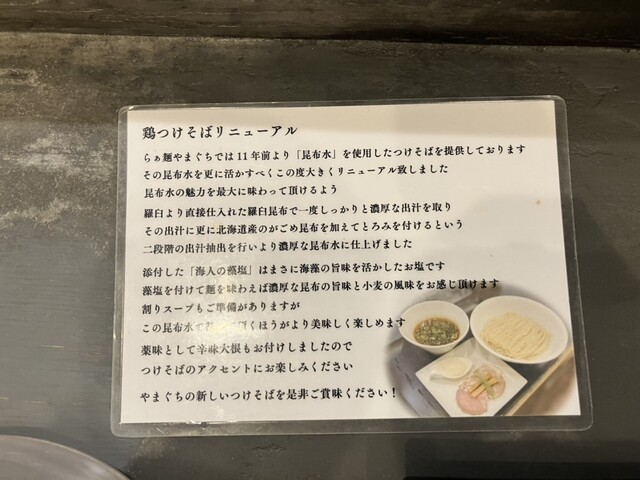 鶏つけそばリニューアル
らぁ麺やまぐちでは11年前より「昆布水」を使用したつけそばを提供しております
その昆布水を更に活かすべくこの度大きくリニューアル致しました
昆布水の魅力を最大に味わって頂けるよう
羅臼より直接仕入れた羅臼昆布で一度しっかりと濃厚な出汁を取り
その出汁に更に北海道産のがごめ昆布を加えてとろみを付けるという
二段階の出汁抽出を行いより濃厚な昆布水に仕上げました
添付した「海人の藻塩」はまさに海藻の旨味を活かしたお塩です
藻塩を付けて麺を味わえば濃厚な昆布の旨味と小麦の風味をお感じ頂けます
割りスープもご準備がありますが
この昆布水で 頂くほうがより美味しく楽しめます
薬味として辛味大根もお付けしましたので
つけそばのアクセントにお楽しみください
やまぐちの新しいつけそばを是非ご賞味ください！